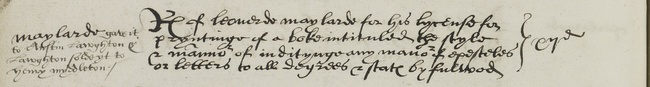 maylarde gave it
to Austin Lawghton &
Lawghton solde yt to
henry myddleton /
R of leonerde maylarde for his lycense for
pryntinge of a boke intituled the style
& manner of indityinge any maner of epesteles
or letters to all degrees & state by fulwod
xijd